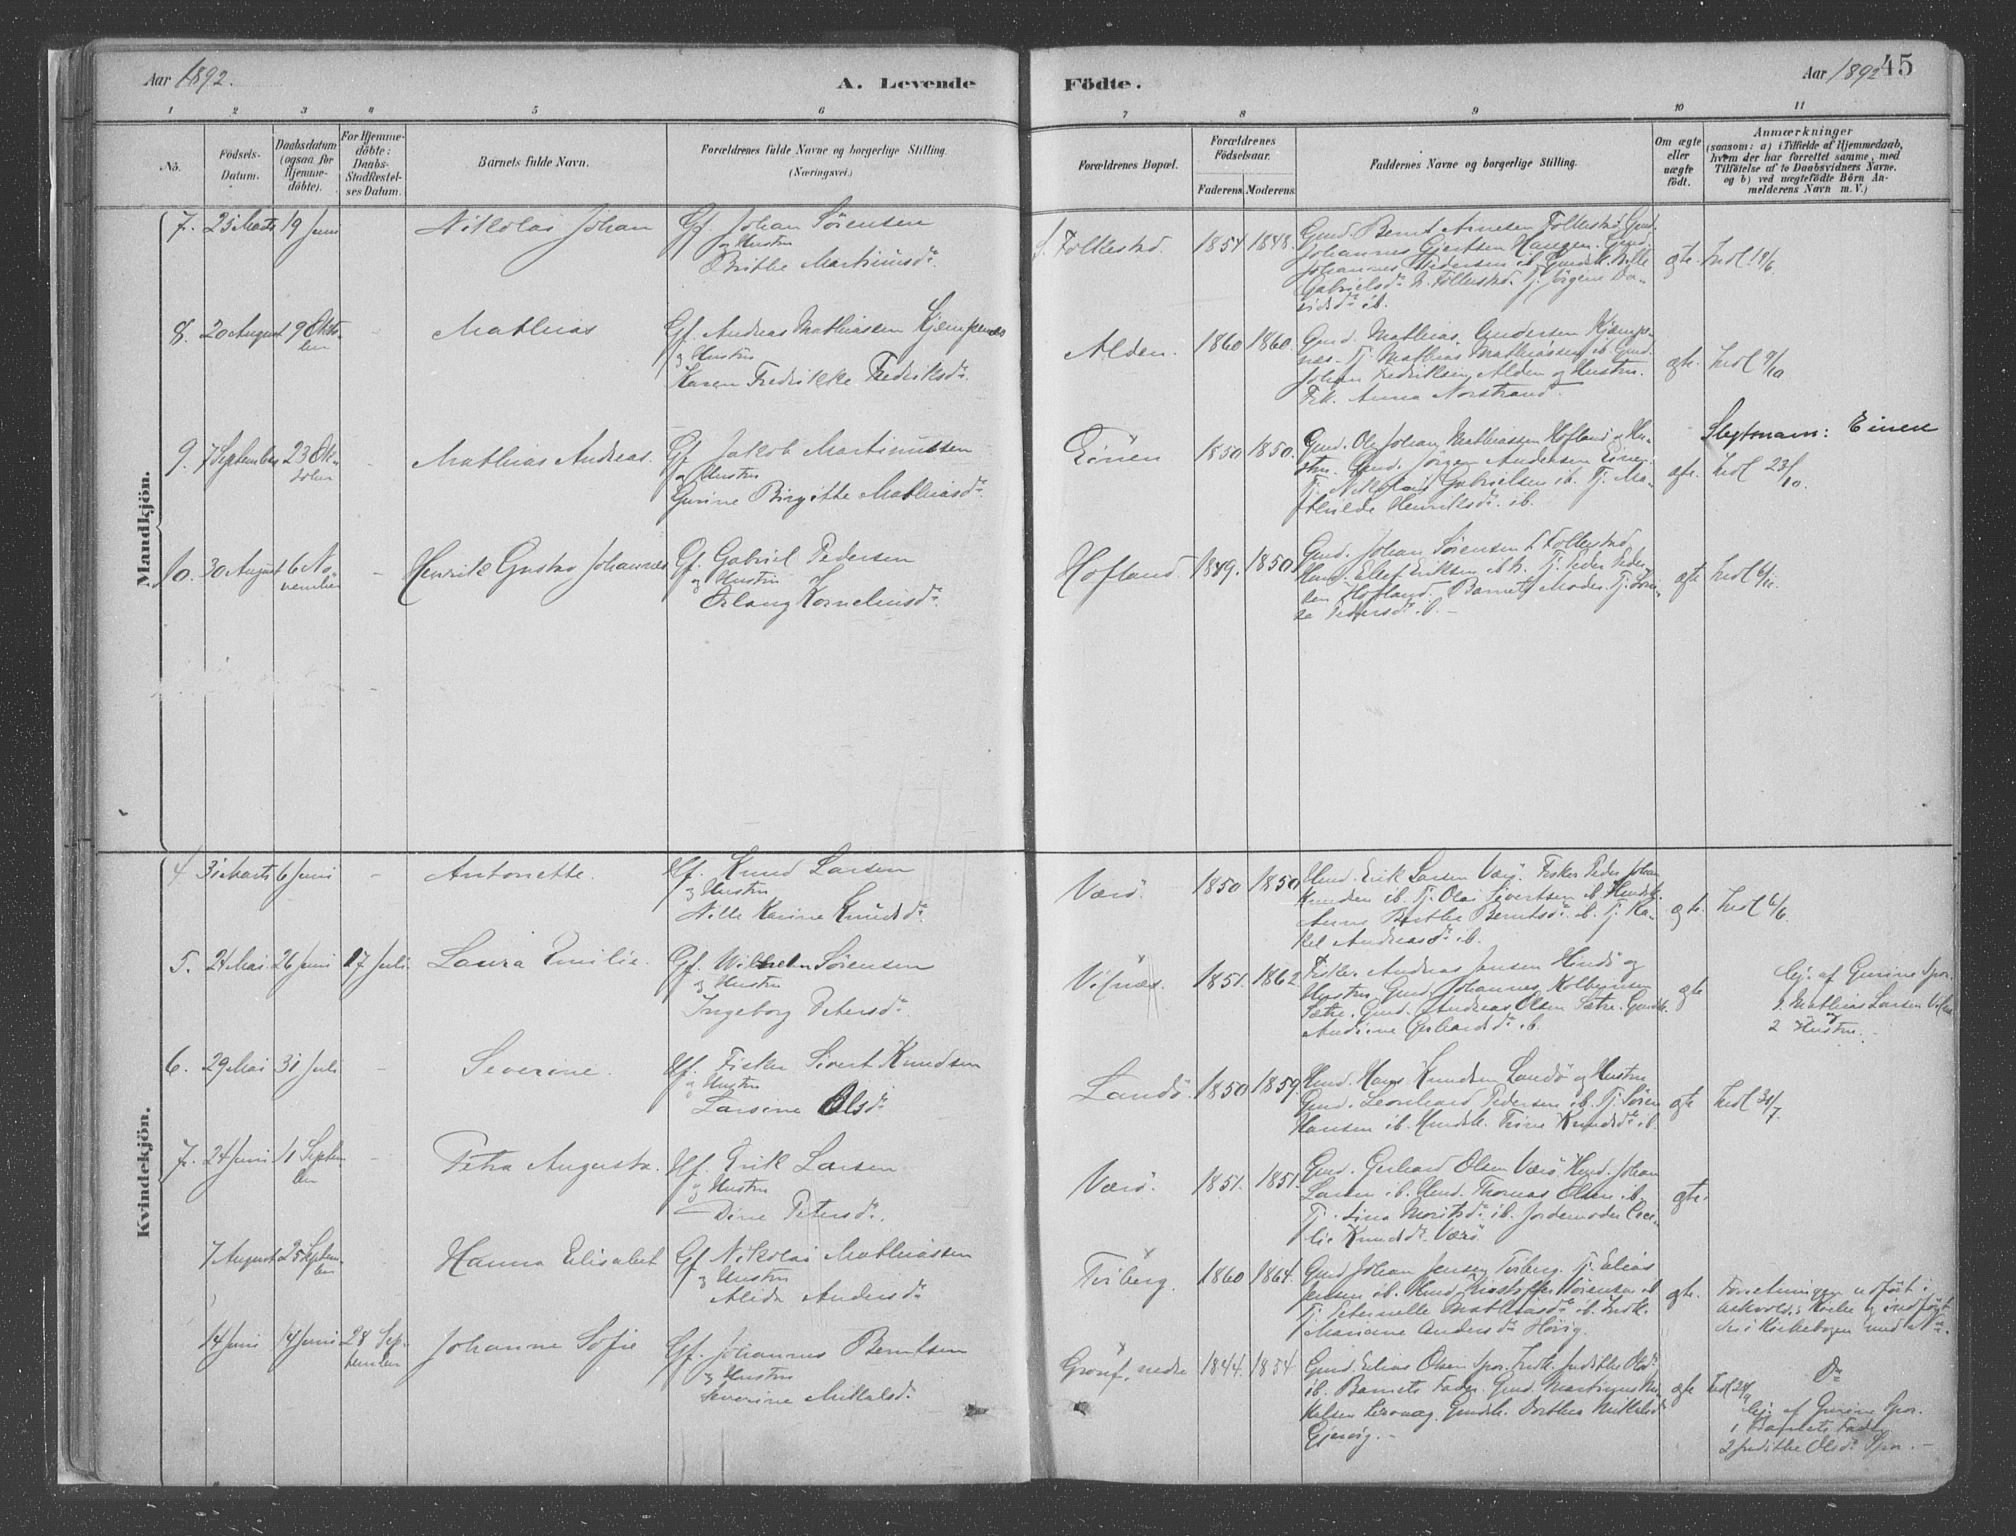 Aar 1892.
A. Levende
Födte.
Aar 1892
45
1 2 3 4 5 6 7 8 9 10 11
No.
Födsels-
Datum.
Daabsdatum
(ogsaa for
Hjemme-
döbte).
For Hjemme-
döbte:
Daabs-
Stadfæstel-
ses Datum.
Barnets fulde Navn.
Forældrenes fulde Navne og borgerlige Stilling.
(Næringsvei.)
Forældrenes Bopæl.
Forældrenes
Födselsaar.
Faderens. Moderens.
Faddernes Navne og borgerlige Stilling.
Om ægte
eller
uægte
födt.
Anmærkninger
(saasom: a) i Tilfælde af Hjemmedaab,
hvem der har forrettet samme, med
Tilföielse af to Daabsvidners Navne.
og b) ved uægtefödte Börn An-
melderens Navn m. V.)
Mandkjön.
7. 25 Marts 19 Juni Nikolai Johan
Gf. Johan Sørensen
og Hustru
Brithe Martinusdr.
S. Folkestad 1854 1848.
Gmd. Bernt Arnesen Folkestad Gmd.
Johannes Gjertsen Haugen. Gmd.
Johannes Pedersen ib. Gmdsk. Nille
Gabrielsdr. N. Folkestad. Tj. Jörgine Da-
vidsdr. ib.
ægte. Indl. 19/6.
8. 20 August 9 Okto-
ber - Mathias
Gf. Andreas Mathiassen Kjempenæs
og Hustru
Karen Fredrikke Fredriksdr.
Alden. 1860 1860.
Gmd. Mathias Andersen Kjemps-
næs. Tj. Mathias Mathiassen ib. Gmd.
Johan Fredriksen Alden og Hustru.
Frk. Anna Norstrand.
ægte. Indl 9/10
9. 7 September 23 Ok-
tober Mathias Andreas.
Gf. Jakob Martinussen
og Hustru
Gurine Birgitte Mathiasdr.
Einen 1850 1850.
Gmd. Ole Johan Mathiassen Hofland og Hu-
stru. Gmd. Jörgen Andersen Einen.
Tj. Nikolai Gabrielsen ib. Tj. Ma-
thilde Henriksdr. ib.
ægte. Slegtsnavn: Einen
Indl 23/10.
10. 30 August 6 No-
vember - Henrik Gustav Johannes
Gf. Gabriel Pedersen
og Hustru
Oslaug Korneliusdr.
Hofland. 1849. 1850.
Gmd. Johan Sørensen S. Folkestad
Hmd. Elef Eriksen ib. Tj. Peder Peder-
sen Hofland. Barnets Moder. Tj.
Pedersdr. ib. -
ægte Indl 6/11.
Kvindekjön.
4 31 Marts 6 Juni - Antonette.
Hf. Knud Larsen
og Hustru
Nille Karine Knudsdr.
Værö. 1850 1850
Hmd. Erik Larsen Værö. Fisker Peder Johan
Knudsen ib. Tj. Olai Sivertsen ib. Hmdsk.
Anne Birthe Berntsdr. ib. Tj. Ra-
kel Andreasdr. ib.
ægte. Indl 6/6.
5. 24 Mai 26 Juni 17 Juli. Laura Emilie.
Gf. Wilhelm Sørensen
og Hustru
Ingeborg Petersdr.
Vilnæs. 1851. 1862.
Fisker Andreas Jensen Hindö og
Hustru Gmd. Johannes Kolbeinsen
Sætre. Gmd. Andreas Olsen Sætre. Gmdsk.
Andrine Gerhardsdr. ib.
ægte
Gj. af Gurine Spor.
1 Mathias Larsen Vilnæs
2 og Hustru.
6. 29 Mai 31 Juli - Severine.
Hf. Fisker Sivert Knudsen
og Hustru
Larsine Olsdr.
Landö. 1850 1859.
Hmd. Hans Knudsen Landö og Hustru
Gmd. Leonhard Pedersen ib. Tj. Sören
Hansen ib. Hmdsk. Trine Knudsdr. ib.
ægte Indl 31/7
7. 24 Juni 11 Septem-
ber - Petra Augusta.
Hf. Erik Larsen
og Hustru
Dine Petersdr.
Værö. 1851. 1851.
Gmd. Gerhard Olsen Værö Hmd. Johan
Larsen ib. Hmd. Thomas Olsen ib.
Tj. Lina Moritsdr. ib. Jordemoder Ceci-
lie Knudsdr. Værö
ægte.
7 August 25 Septem-
ber Hanna Elisabet
Gf. Nikolai Mathiassen
og Hustru
Alida Andersdr.
Tviberg. 1860 1864.
Gmd Johan Jensen Tviberg. Tj. Elias
Jensen ib. Hmd. Kristoffer Sørensen ib.
Tj. Petronelle Mathiasdr. ib. Indk.
Mariane Andersdr. Høvig.
ægte.
Forretningen udført i
Askvold Kirke og indført
der i Kirkebogen med No.
14 Juni 14 Juni 28 Sep-
tember Johanne Sofie
Gf. Johannes Berntsen
og Hustru
Severine Mikkelsdr.
Grönf. nedre 1844. 1854.
Gmd. Elias Olsen Spor. Indk. Judithe Olsdr.
ib. Barnets Fader. Gmd. Martinus Mi-
kelsen Leirvaag. Gmdsk. Dorthea Mikkelsdr
Gjervig. -
ægte Indl 28/9
Do
Gj. af Gurine Spor.
1 Barnets Fader
2 Judithe Olsdr Spor. -